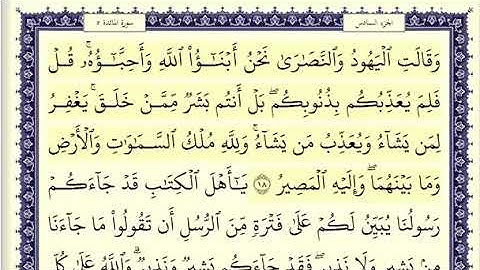 الجزء السادس سورة المائدة ٥
وَقَالَتِ ٱلۡيَهُودُ وَٱلنَّصَٰرَىٰ نَحۡنُ أَبۡنَٰٓؤُاْ ٱللَّهِ وَأَحِبَّٰٓؤُهُۥۚ قُلۡ
فَلِمَ يُعَذِّبُكُم بِذُنُوبِكُمۖ بَلۡ أَنتُم بَشَرٞ مِّمَّنۡ خَلَقَۚ يَغۡفِرُ
لِمَن يَشَآءُ وَيُعَذِّبُ مَن يَشَآءُۚ وَلِلَّهِ مُلۡكُ ٱلسَّمَٰوَٰتِ وَٱلۡأَرۡضِ
وَمَا بَيۡنَهُمَاۖ وَإِلَيۡهِ ٱلۡمَصِيرُ ١٨ يَٰٓأَهۡلَ ٱلۡكِتَٰبِ قَدۡ جَآءَكُمۡ
رَسُولُنَا يُبَيِّنُ لَكُمۡ عَلَىٰ فَتۡرَةٖ مِّنَ ٱلرُّسُلِ أَن تَقُولُواْ مَا جَآءَنَا
مِنۢ بَشِيرٖ وَلَا نَذِيرٖۖ فَقَدۡ جَآءَكُم بَشِيرٞ وَنَذِيرٞۗ وَٱللَّهُ عَلَىٰ كُلِّ